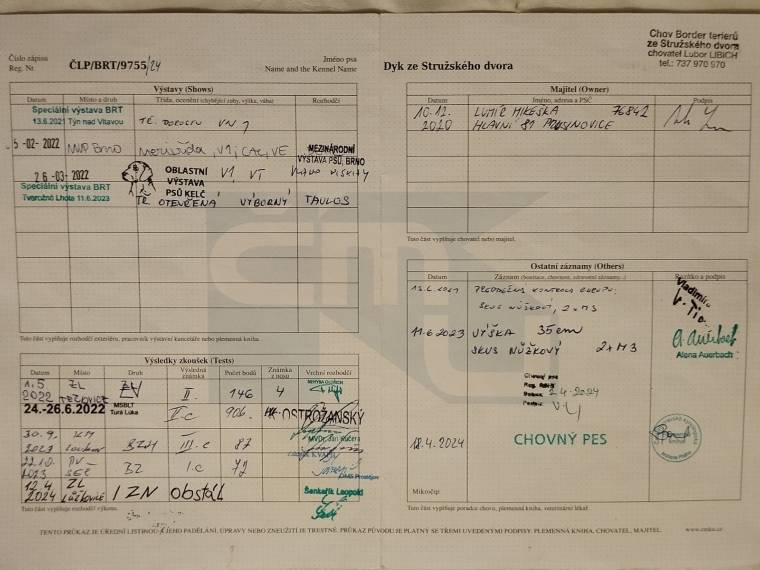 Číslo zápisu
Reg. Nr.
ČLP/BRT/9755/24
Jméno psa
Name and the Kennel Name
Dyk ze Stružského dvora
Chov Border terierů
ze Stružského dvora
chovatel Lubor LIBICH
tel.: 737 970 970
Výstavy (Shows)
Datum Místo a druh Třída, ocenění (chybějící zuby, výška, váha) Rozhodčí
Speciální výstava BRT
13.6.2021 Týn nad Vltavou
TŘ. DOROSTU VN 1
5-02-2022 MVP Brno mezitřída, V1, CAC, VE
MEZINÁRODNÍ
VÝSTAVA PSŮ, BRNO
26-03-2022
OBLASTNÍ
VÝSTAVA
PSŮ KELČ
V1, VT
Speciální výstava BRT
Tvarožná Lhota 11.6.2023
TŘ. OTEVŘENÁ VÝBORNÝ TAULOS
Tuto část vyplňuje rozhodčí exteriéru, pracovník výstavní kanceláře nebo plemenná kniha.
Výsledky zkoušek (Tests)
Datum Místo Druh Výsledná známka Počet bodů Známka z nosu Vrchní rozhodčí
1.5 2022 ZL ZV II. 146 4
24.-26.6.2022 MSBLT Turá Lúka II.c 906. OSTROŽANSKÝ
30.9. 2023 KM BZH III.c 87 MVDr. Jan Kučera
22.10. 2023 PV BZ I.c 72
12.4 2024 ZL IZN obstál Šenkeřík Leopold
Tuto část vyplňuje rozhodčí výkonu.
Majitel (Owner)
Datum Jméno, adresa a PSČ Podpis
10.12. 2020 LUMÍR MIKEŠKA 76842
HLAVNÍ 81
Tuto část vyplňuje chovatel nebo majitel.
Ostatní záznamy (Others)
Datum Záznam (bonitace, chovnost, zdravotní záznamy...) Razítko a podpis
PŘEDBĚŽNÁ KONTROLA CHRUPU:
SKUS NŮŽKOVÝ, 2xM3
11.6.2023 VÝŠKA 35cm
SKUS NŮŽKOVÝ 2xM3
A. Auerbach
Alena Auerbach
Chovný pes
2.4.2024
18.4.2024 CHOVNÝ PES
Mikročip:
Tuto část vyplňuje poradce chovu, plemenná kniha, veterinární lékař.
TENTO PRŮKAZ JE ÚŘEDNÍ LISTINOU A JEHO PADĚLÁNÍ, ÚPRAVY NEBO ZNEUŽITÍ JE TRESTNÉ. PRŮKAZ PŮVODU JE PLATNÝ SE TŘEMI UVEDENÝMI PODPISY: PLEMENNÁ KNIHA, CHOVATEL, MAJITEL.
www.cmku.cz